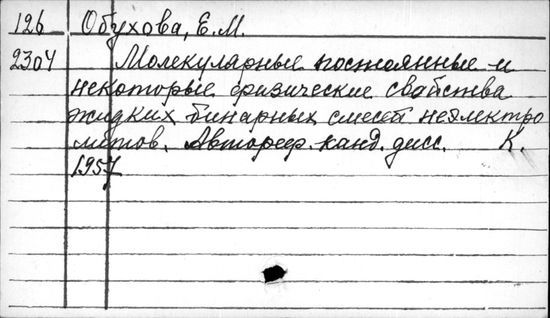 126 Обухова, Е.М.
2304 Молекулярные постоянные и
некоторые физические свойства
жидких бинарных смесей неэлектро
литов. Автореф. канд. дисс. К.
1957